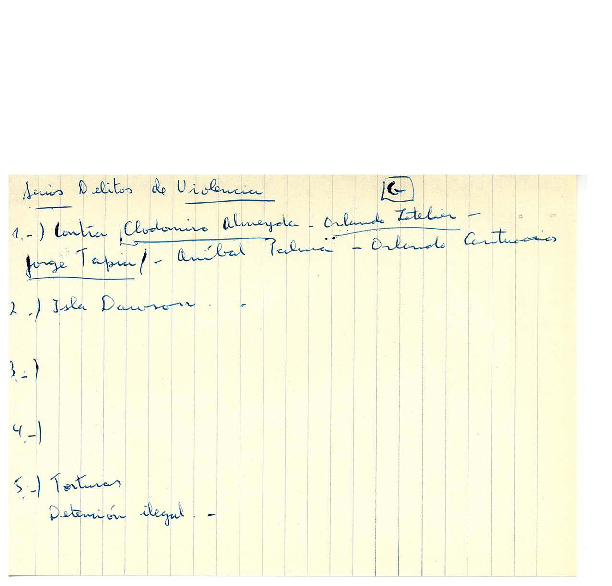 Delitos de Violencia
1.-) Contra Clodomiro Almeyda - Orlando Letelier -
Jorge Tapia / - Aníbal Palma - Orlando Cantuarias
2.-) Isla Dawson. -
3.-)
4.-)
5.-) Torturas
Detención ilegal. -